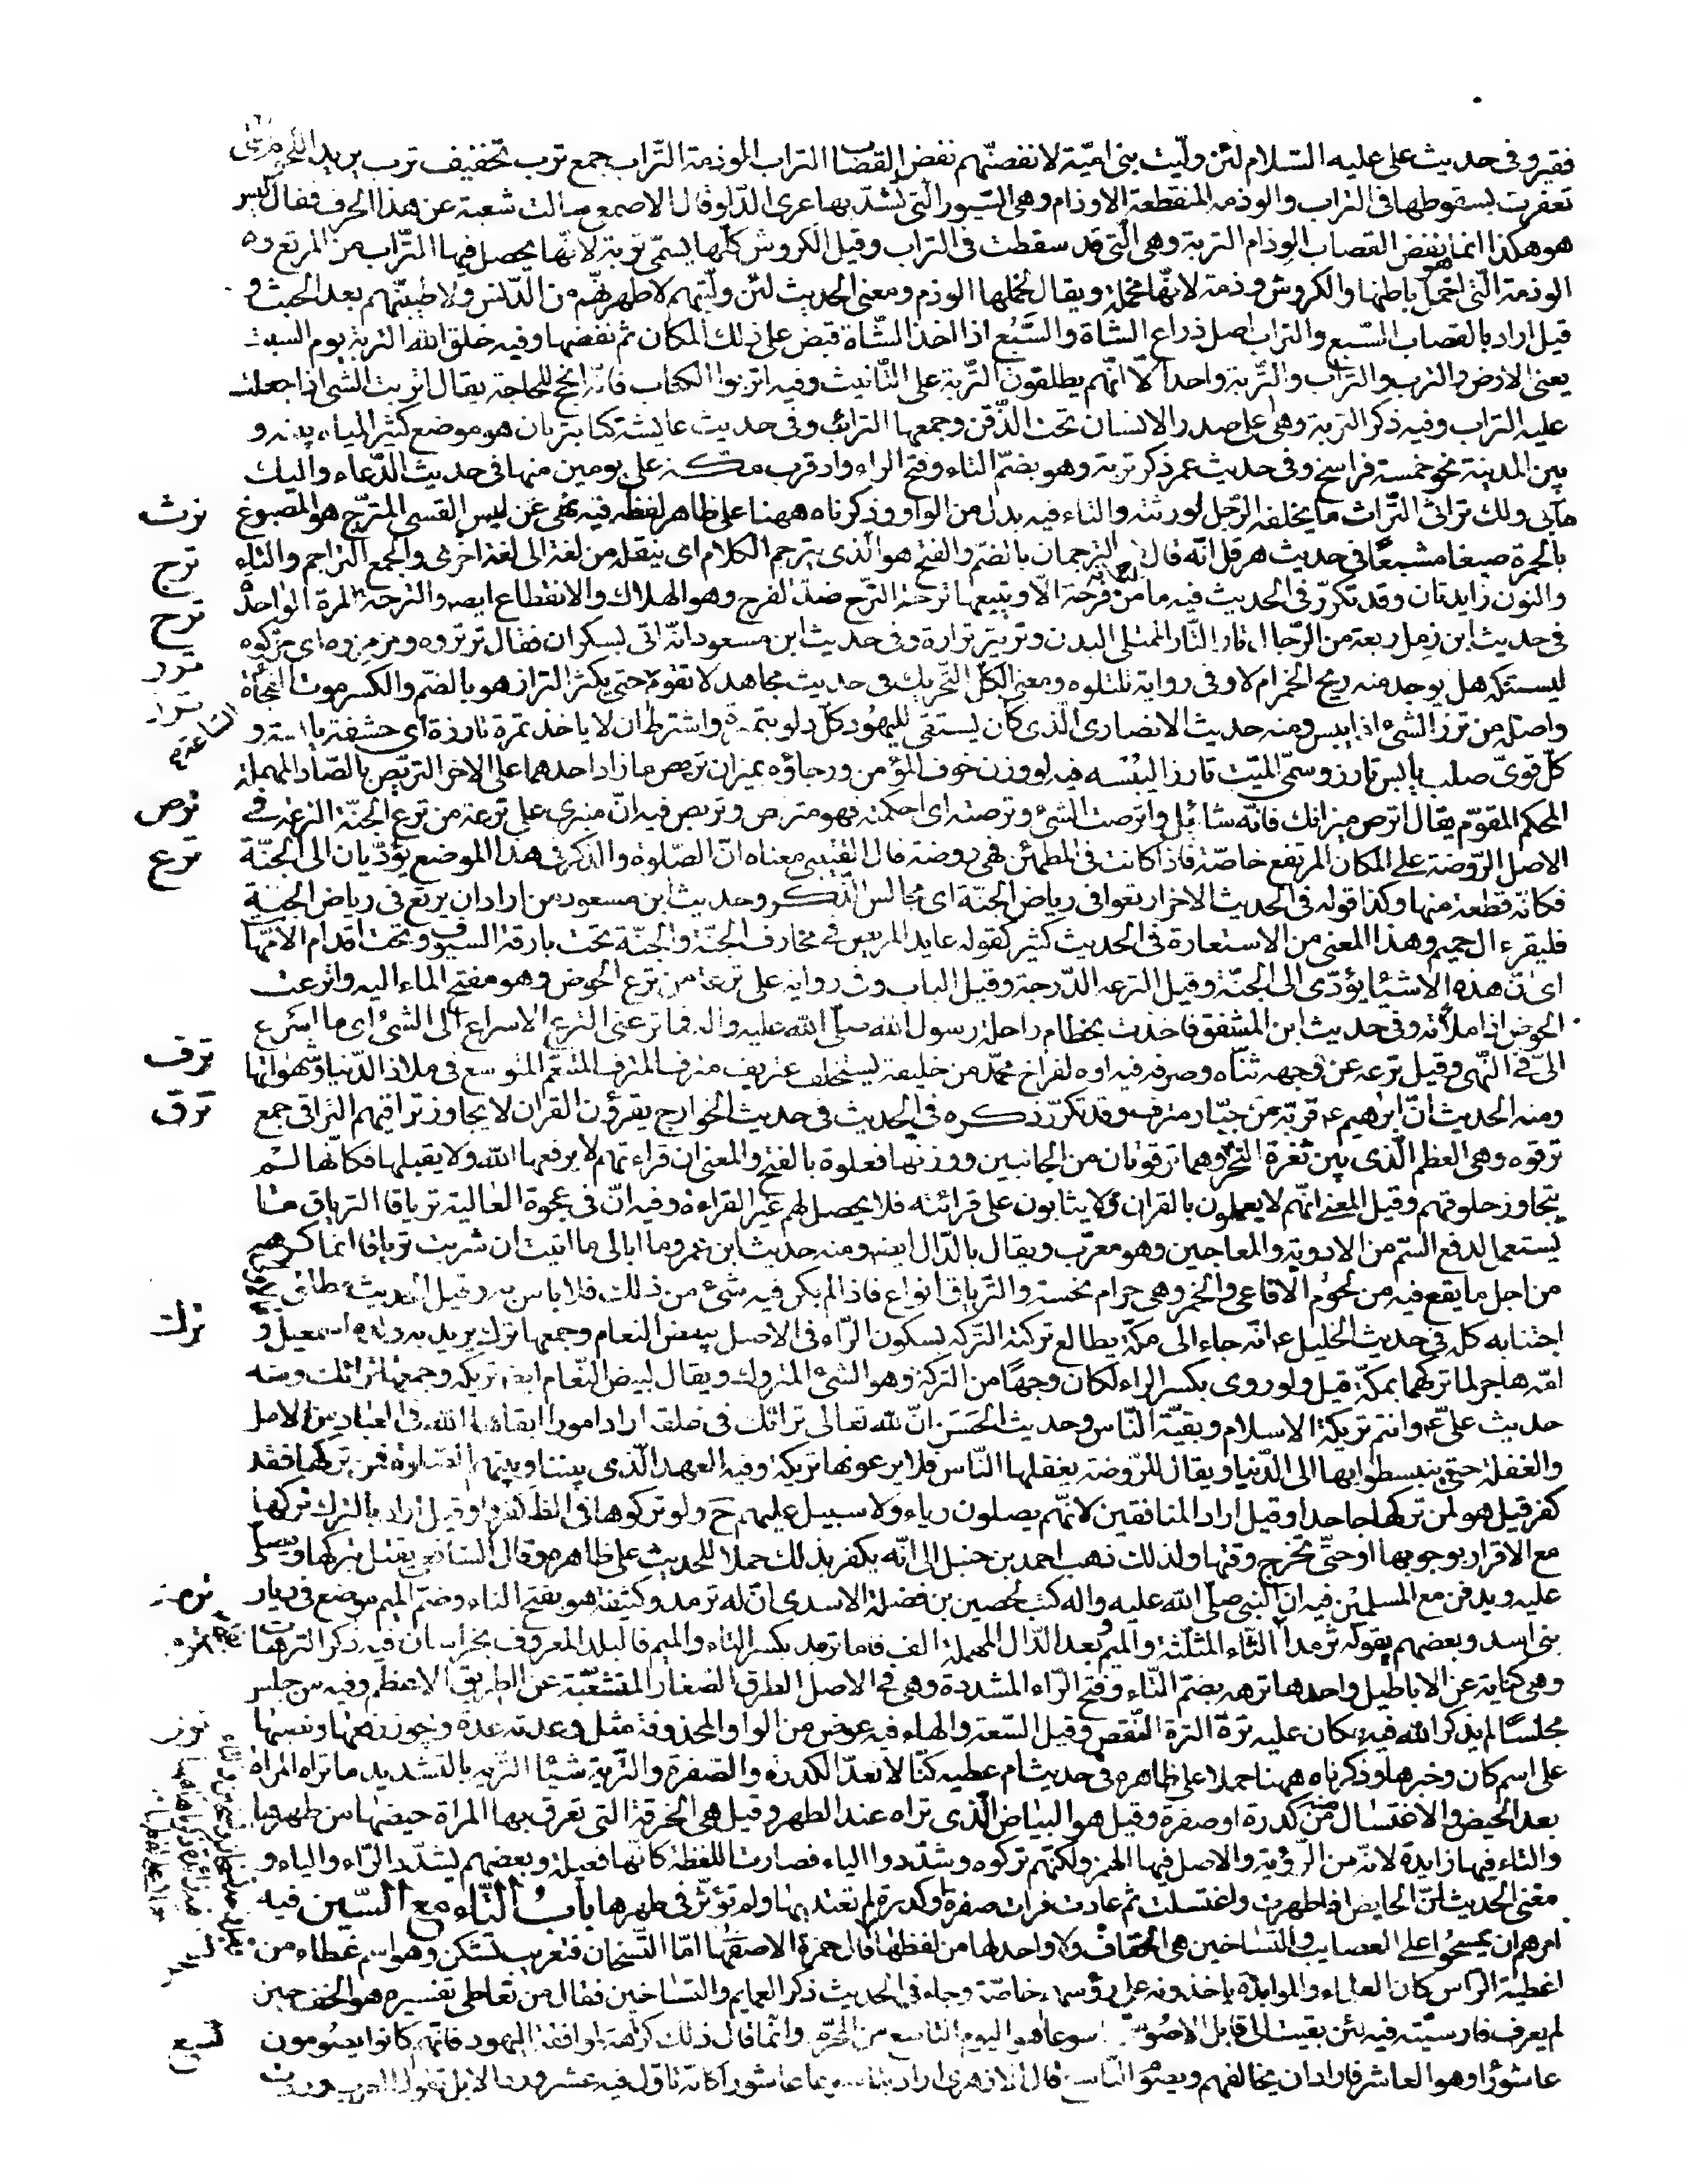 فقير وفى حديث على عليه السّلام لئن ولّيت بنى اميّة لانفضنّهم نفض القصّاب التراب الوذمة التّراب جمع ترب تخفيف ترب يريد اللحوم التى
تعفرت بسقوطها فى التراب والوذمة المنقطعة الاوذام وهى السّيور الّتى يشدّ بها عرى الدّلو قال الاصمعى سالت شعبة عن هذا الحرف فقال ليس
هو هكذا انما نفض القصاب الوذام التربة وهى الّتى قد سقطت فى التراب وقيل الكروش كلّها يسمّى تربة لانّها يحصل فيها التّراب من المرتع و
الوذمة الّتى اخمل باطنها والكروش وذمة لانّها مخملة ويقال لخملها الوذم ومعنى الحديث لئن ولّيتهم لاطهرنّهم من الدّنس ولاطيبنّهم بعد الخبث و
قيل اراد بالقصاب السّبع والتراب اصل ذراع الشّاة والسَّبُع اذا اخذ الشّاة قبض على ذلك المكان ثم نفضها وفيه خلق الله التربة يوم السبت
يعنى الارض والترب والتراب والتّربة واحد الّا انّهم يطلقون التّربة على التّانيث وفيه اتربوا الكتاب فانّه انجح للحاجة يقال اتربت الشئ اذا جعلت
عليه التراب وفيه ذكر التريبة وهى اعلى صدر الانسان تحت الذّقن وجمعها الترائب وفى حديث عايشة كنا بتربان هو موضع كثير المياه بينه و
بين المدينة نحو خمسة فراسخ وفى حديث عمر ذكر تربة وهو بضمّ التاء وفتح الراء واد قرب مكّة على يومين منها فى حديث الدّعاء واليك
مآبى ولك تراثى التّراث ما يخلفه الرّجل لورثته والتاء فيه بدل من الواو وذكرناه ههنا على ظاهر لفظه فيه نهى عن لبس القسى المترّج هو المصبوغ
ترث
بالحمرة صبغا مشبعًا فى حديث هرقل انّه قال لترجمانه الترجمان بالضمّ والفتح هو الّذى يترجم الكلام اى ينقله من لغة الى لغة اخرى والجمع التراجم والتاء
ترج
والنون زايدتان وقد تكرّر فى الحديث فيه ما من فرحة الّا ويتبعها ترحة التّرح ضدّ الفرح وهو الهلاك والانقطاع ايضا والترحة المرة الواحدة
ترح
فى حديث ابن زمل ربعة من الرّجال تارّ التّار الممتلى البدن وتر يتر ترارة وفى حديث ابن مسعود انّه اتى بسكران فقال ترتروه ومزمزوه اى حرّكوه
ترر
ليستنكه هل يوجد منه ريح الخمر ام لا وفى رواية تلتلوه ومعنى الكلّ التّحريك فى حديث مجاهد لا تقوم حتى يكثر التراز هو بالضمّ والكسر موت الفجاة
ترز
واصله من ترز الشئ اذا يبس ومنه حديث الانصارى الّذى كان يستقى لليهود كلّ دلو بتمرة واشترط ان لا ياخذ تمرة تارزة اى حشفة يابسة و
كلّ قوىّ صلب يابس تارز وسمّى الميّت تارزا ليبسه فيه لو وزن خوف المؤمن ورجاؤه بميزان تريص ما زاد احدهما على الاخر التريص بالصّاد المهملة
المحكم المقوّم يقال اترص ميزانك فانّه شائل واترصت الشئ وترصته اى احكمته فهو مترص وتريص فيه انّ منبرى على ترعة من ترع الجنّة الترعة فى
ترص
الاصل الرّوضة على المكان المرتفع خاصّة فاذا كانت فى المطمئن فهى روضة قال القتيبى معناه انّ الصّلوة والذكر فى هذا الموضع يؤدّيان الى الجنّة
ترع
فكانّه قطعة منها وكذا قوله فى الحديث الاخر ارتعوا فى رياض الجنّة اى مجالس الذّكر وحديث ابن مسعود من اراد ان يرتع فى رياض الجنة
فليقرء ال حم وهذا المعنى من الاستعارة فى الحديث كثير كقوله عايد المريض فى مخارف الجنّة والجنّة تحت بارقة السيوف وتحت اقدام الامّهات
اى انّ هذه الاشيا يؤدّى الى الجنّة وقيل الترعة الدّرجة وقيل الباب وفى رواية على ترعة من ترع الحوض وهو مفتح الماء اليه واترعت
الحوض اذا ملأته وفى حديث ابن المنتفق فاخذت بخطام راحلة رسول الله صلّى الله عليه واله فما ترعنى الترع الاسراع الى الشئ اى ما اسرع
الىّ فى النّهى وقيل ترعه عن وجهه ثناه وصرفه فيه اوه لفراخ محمّد من خليفة يستخلف عتريف مترف المترف المتنعّم المتوسع فى ملاذ الدّنيا وشهواتها
ترف
ومنه الحديث انّ ابرهيم ع فرّ به من جبّار مترف وقد تكرّر ذكره فى الحديث فى حديث الخوارج يقرؤن القران لا يجاوز تراقيهم التراقى جمع
ترق
ترقوه وهى العظم الّذى بين ثغرة النحر وهما ترقوتان من الجانبين ووزنها فعلوة بالفتح والمعنى ان قراءتهم لا يرفعها الله ولا يقبلها فكانّها لم
يتجاوز حلوقهم وقيل المعنى انّهم لا يعملون بالقران ولا يثابون على قرائته فلا يحصل لهم غير القراءة وفيه انّ فى عجوة العالية ترياقا الترياق ما
يستعمل لدفع السّم من الادوية والمعاجين وهو معرّب ويقال بالدّال ايضا ومنه حديث ابن عمرو ما ابالى ما اتيت ان شربت ترياقا انما كرهه
من اجل ما يقع فيه من لحوم الافاعى والخمر وهى حرام نجسة والتّرياق انواع فاذا لم يكن فيه شئ من ذلك فلا باس به وقيل الحديث مطلق
اجتنابه كله فى حديث الخليل ع انّه جاء الى مكّة يطالع تركته التّركة بسكون الرّاء فى الاصل بيض النعام وجمعها ترك يريد به ولده اسمعيل و
ترك
امّه هاجر لما تركهما بمكّة قيل ولو روى بكسر الراء لكان وجهًا من التركة وهو الشئ المتروك ويقال لبيض النّعام ايضا تريكة وجمعها ترائك ومنه
حديث علىّ ع وانتم تريكة الاسلام وبقيّة النّاس وحديث الحَسَن انّ لله تعالى ترائك فى خلقه اراد امورا ابقاها الله فى العباد من الامل
والغفلة حتى ينبسطوا بها الى الدّنيا ويقال للرّوضة يغفلها النّاس فلا يرعونها تريكة وفيه العهد الّذى بيننا وبينهم الصّلوة فمن تركها فقد
كفر قيل هو لمن تركها جاحدا وقيل اراد المنافقين لانّهم يصلون رياء ولا سبيل عليهم ح ولو تركوها فى الظّاهر كفروا وقيل اراد بالترك تركها
مع الاقرار بوجوبها او حتّى يخرج وقتها ولذلك ذهب احمد بن حنبل الى انّه يكفر بذلك حملا للحديث على ظاهره وقال الشافعى يقتل بتركها ويصلّى
عليه ويدفن مع المسلمين فيه ان النبى صلّى الله عليه واله كتب لحصين بن فضلة الاسدى انّ له ترمد وكثيفة هو بفتح التاء وضمّ الميم موضع فى ديار
بنى اسد وبعضهم يقوله ثرمدا الثّاء المثلّثة والميم وبعد الدّال المهملة الف فاما ترمد بكسر التاء والميم فالبلد المعروف بخراسان فيه ذكر الترهات
وهى كناية عن الاباطيل واحدها ترهه بضمّ التّاء وفتح الرّاء المشددة وهى فى الاصل الطرق الصغار المتشعّبة عن الطريق الاعظم وفيه من جلس
مجلسًا لم يذكر الله فيه كان عليه ترة الترة النّقص وقيل التّبعة والهاء فيه عوض من الواو المحذوفة مثل وعدته عدة ويجوز رفعها ونصبها
على اسم كان وخبرها وذكرناه ههنا حملا على ظاهره فى حديث ام عطيه كنّا لا نعدّ الكدرة والصّفرة والتّريّة شيئا التّريه بالتشديد ما تراه المراة
بعد الحيض والاغتسال منه من كدرة او صفرة وقيل هو البياض الّذى تراه عند الطهر وقيل هى الخرقة التى تعرف بها المراة حيضها من طهرها
والتاء فيها زايدة لانّه من الرّؤية والاصل فيها الهمز ولكنّهم تركوه وشدّدوا الياء فصارت اللفظة كانّها فعيلة وبعضهم يشدّد الرّاء والياء و
معنى الحديث انّ الحايض اذا طهرت واغتسلت ثم عادت فرات صفرة او كدرة لم تعتد بها ولم تؤثّر فى طهرها بابُ التّاء مع السّين فيه
امرهم ان يمسحُوا على العصايب والتّساخين هى الخفاف ولا واحد لها من لفظها قال حمزة الاصفهانى امّا التّسخان فتعريب تشكن وهو اسم غطاء من
اغطية الرّاس كان العلماء والموابذة ياخذونه على رؤسهم خاصّة وجاء فى الحديث ذكر العمايم والتّساخين فقال من تعاطى تفسيره هو الخف حين
لم يعرف فارسيّته فيه لئن بقيت الى قابل لاصُومنّ تاسوعا هو اليوم التاسع من المحرّم وانّما قال ذلك كراهة لموافقة اليهود فانّهم كانوا يصُومون
تسع
عاشورا وهو العاشر فاراد ان يخالفهم ويصوم التّاسع قال الازهرى اراد بتاسوعا عاشورا كانّه تاوّل فيه عشر ورد الابل تقول العرب وردت